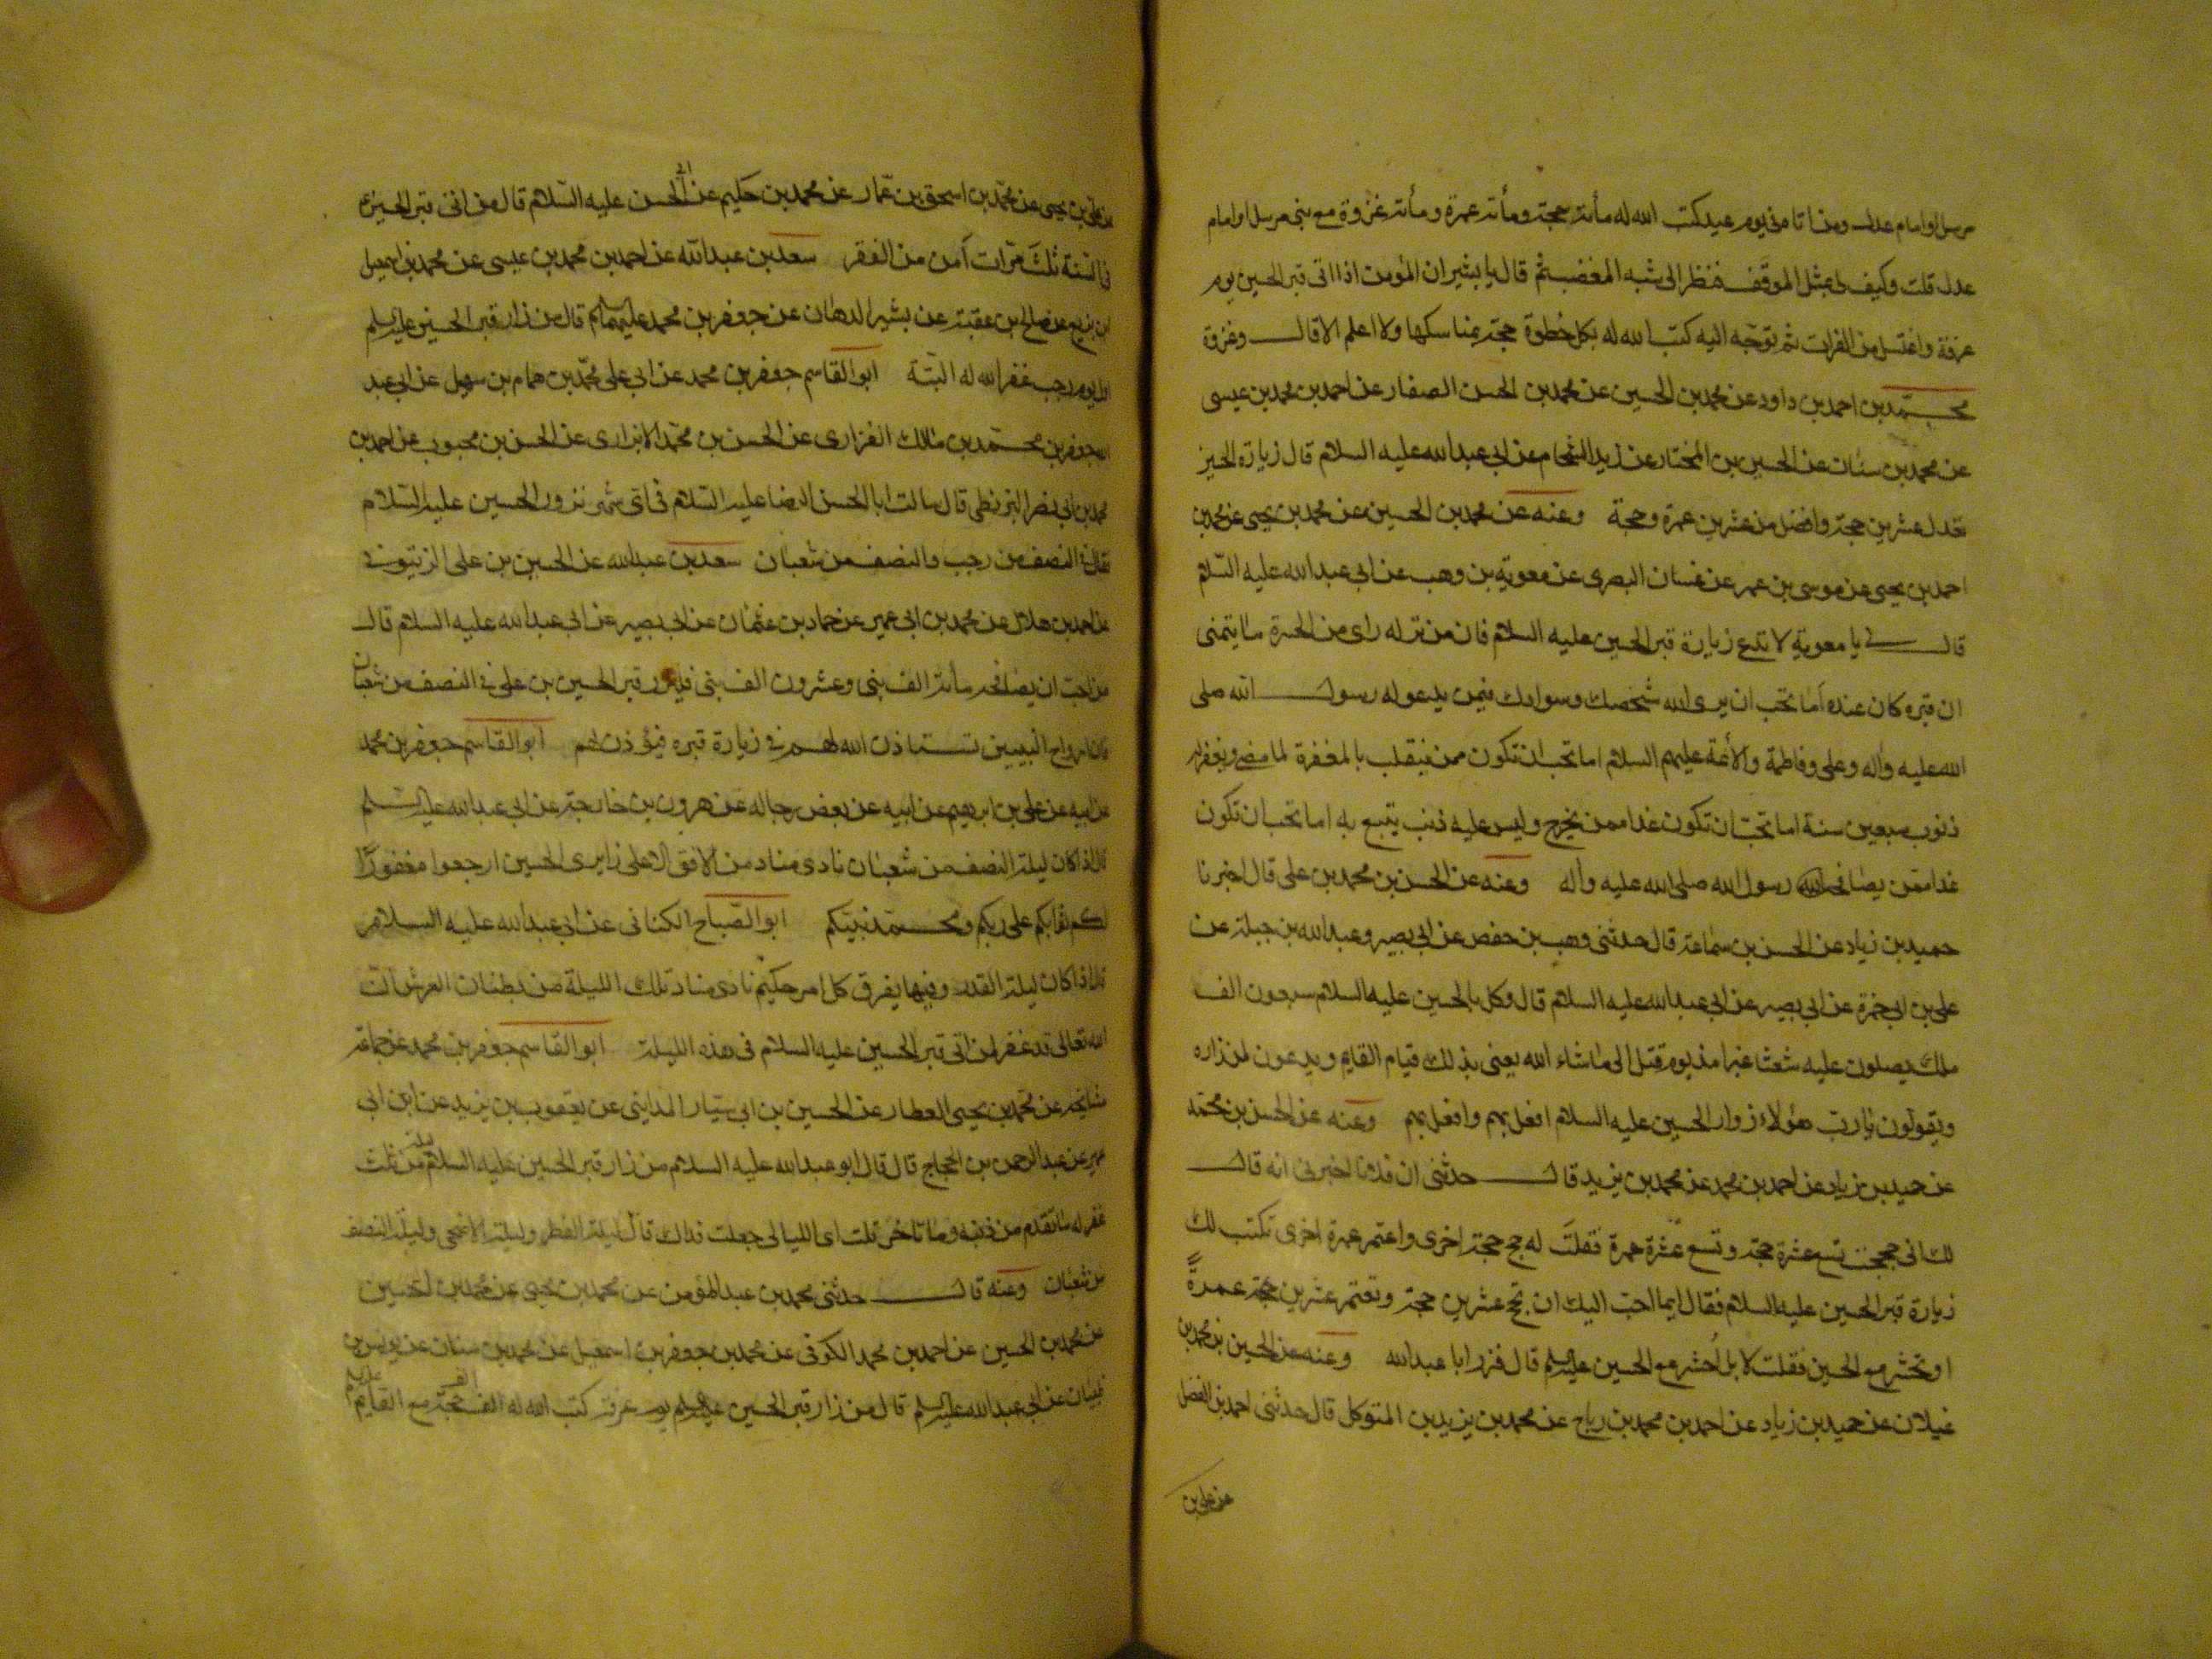 مرسل او امام عدل ومن اتاه فى يوم عيد كتب الله له مأته حجة ومأته عمرة ومأته غزوة مع نبى مرسل او امام
عدل قلت وكيف لى بمثل الموقف فنظر الى شبه المغضب ثم قال يا بشير ان المؤمن اذا اتى قبر الحسين يوم
عرفة واغتسل من الفرات ثم توجه اليه كتب الله له بكل خطوة حجة بمناسكها ولا اعلم الا قال وغزوة
محمد بن احمد بن داود عن محمد بن الحسين عن محمد بن الحسن الصفار عن احمد بن محمد بن عيسى
عن محمد بن سنان عن الحسين بن المختار عن زيد الشحام عن ابى عبد الله عليه السلام قال زيارة الحسين
تعدل عشرين حجة وافضل من عشرين عمرة وحجة وعنه عن محمد بن الحسين عن محمد بن يحيى عن محمد بن
احمد بن يحيى عن موسى بن عمر عن غسان البصرى عن معوية بن وهب عن ابى عبد الله عليه السلام
قال لى يا معوية لا تدع زيارة قبر الحسين عليه السلام فان من تركه راى من الحسرة ما يتمنى
ان قبره كان عنده اما تحب ان يرى الله شخصك وسوادك فيمن يدعو له رسول الله صلى
الله عليه واله وعلى وفاطمة والائمة عليهم السلام اما تحب ان تكون ممن ينقلب بالمغفرة لما مضى ويغفر له
ذنوب سبعين سنة اما تحب ان تكون غدا ممن يخرج وليس عليه ذنب يتبع به اما تحب ان تكون
غدا ممن يصافحه رسول الله صلى الله عليه واله وعنه عن الحسن بن محمد بن على قال اخبرنا
حميد بن زياد عن الحسن بن سماعة قال حدثنى وهب بن حفص عن ابى بصير وعبد الله بن جبلة عن
على بن ابى حمزة عن ابى بصير عن ابى عبد الله عليه السلام قال وكل بالحسين عليه السلام سبعون الف
ملك يصلون عليه شعثا غبرا منذ يوم قتل الى ما شاء الله يعنى بذلك قيام القايم ويدعون لمن زاره
ويقولون يا رب هؤلاء زوار الحسين عليه السلام افعل بهم وافعل بهم وعنه عن الحسن بن محمد
عن حميد بن زياد عن احمد بن محمد عن محمد بن يزيد قال حدثنى ان فلانا اخبرنى انه قال
لك انى حججت تسع عشرة حجة وتسع عشرة عمرة فقلت له حج حجة اخرى واعتمر عمرة اخرى تكتب لك
زيارة قبر الحسين عليه السلام فقال ايما احب اليك ان تحج عشرين حجة وتعتمر عشرين حجة عمرةً
او تحشر مع الحسين فقلت لا بل أحشر مع الحسين عليه السلم قال فزر ابا عبد الله وعنه عن الحسين بن محمد بن
غيلان عن حميد بن زياد عن احمد بن محمد بن رباح عن محمد بن يزيد بن المتوكل قال حدثنى احمد بن الفضل
عن على بن
عن على بن يحيى عن محمد بن اسحق بن عمار عن محمد بن حكيم عن ابى الحسن عليه السلام قال من اتى قبر الحسين ع
فى السنة ثلث مرات آمن من الفقر سعد بن عبد الله عن احمد بن محمد بن عيسى عن محمد بن اسمعيل
ابن بزيع عن صالح بن عقبة عن بشير الدهان عن جعفر بن محمد عليهما السلم قال من زار قبر الحسين عليه السلم
اول يوم رجب غفر الله له البتة ابو القاسم جعفر بن محمد عن ابى على محمد بن همام بن سهيل عن ابى عبد
الله جعفر بن محمد بن مالك الفزارى عن الحسن بن محمد الابزارى عن الحسن بن محبوب عن احمد بن
محمد بن ابى نصر البزنطى قال سالت ابا الحسن الرضا عليه السلام فى اى شهر نزور الحسين عليه السلام
فقال فى النصف من رجب والنصف من شعبان سعد بن عبد الله عن الحسين بن على الزيتونى
عن احمد بن هلال عن محمد بن ابى عمير عن حماد بن عثمان عن ابى بصير عن ابى عبد الله عليه السلام قال
من احب ان يصافحه مأته الف نبى وعشرون الف نبى فليزر قبر الحسين بن على فى النصف من شعبان
فان ارواح النبيين تستاذن الله لهم فى زيارة قبره فيؤذن لهم ابو القاسم جعفر بن محمد
عن ابيه عن على بن ابرهيم عن ابيه عن بعض رجاله عن هرون بن خارجة عن ابى عبد الله عليه السلم
قال اذا كان ليلة النصف من شعبان نادى مناد من الافق الاعلى زايرى الحسين ارجعوا مغفورًا
لكم ثوابكم على ربكم ومحمد نبيكم ابو الصباح الكنانى عن ابى عبد الله عليه السلام
قال اذا كان ليلة القدر وفيها يفرق كل امر حكيم نادى مناد تلك الليلة من بطنان العرش ان
الله تعالى قد غفر لمن اتى قبر الحسين عليه السلام فى هذه الليلة ابو القاسم جعفر بن محمد عن جماعة
مشايخه عن محمد بن يحيى العطار عن الحسين بن ابى سيار المداينى عن يعقوب بن يزيد عن ابن ابى
عمير عن عبد الرحمن بن الحجاج قال قال ابو عبد الله عليه السلام من زار قبر الحسين عليه السلام ليلة من ثلث
غفر له ما تقدم من ذنبه وما تاخر قلت اى الليالى جعلت فداك قال ليلة الفطر وليلة الاضحى وليلة النصف
من شعبان وعنه قال حدثنى محمد بن عبد المؤمن عن محمد بن يحيى عن محمد بن الحسين
عن محمد بن الحسين عن احمد بن محمد الكوفى عن محمد بن جعفر بن اسمعيل عن محمد بن سنان عن يونس بن
ظبيان عن ابى عبد الله عليه السلم قال من زار قبر الحسين عليه السلم يوم عرفة كتب الله له الف الف حجة مع القايم عليه السلم